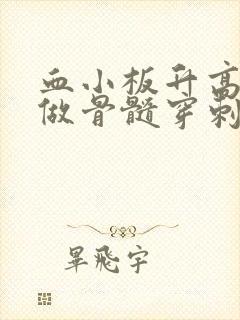 血小板升高
做骨髓穿刺
畢飛宇